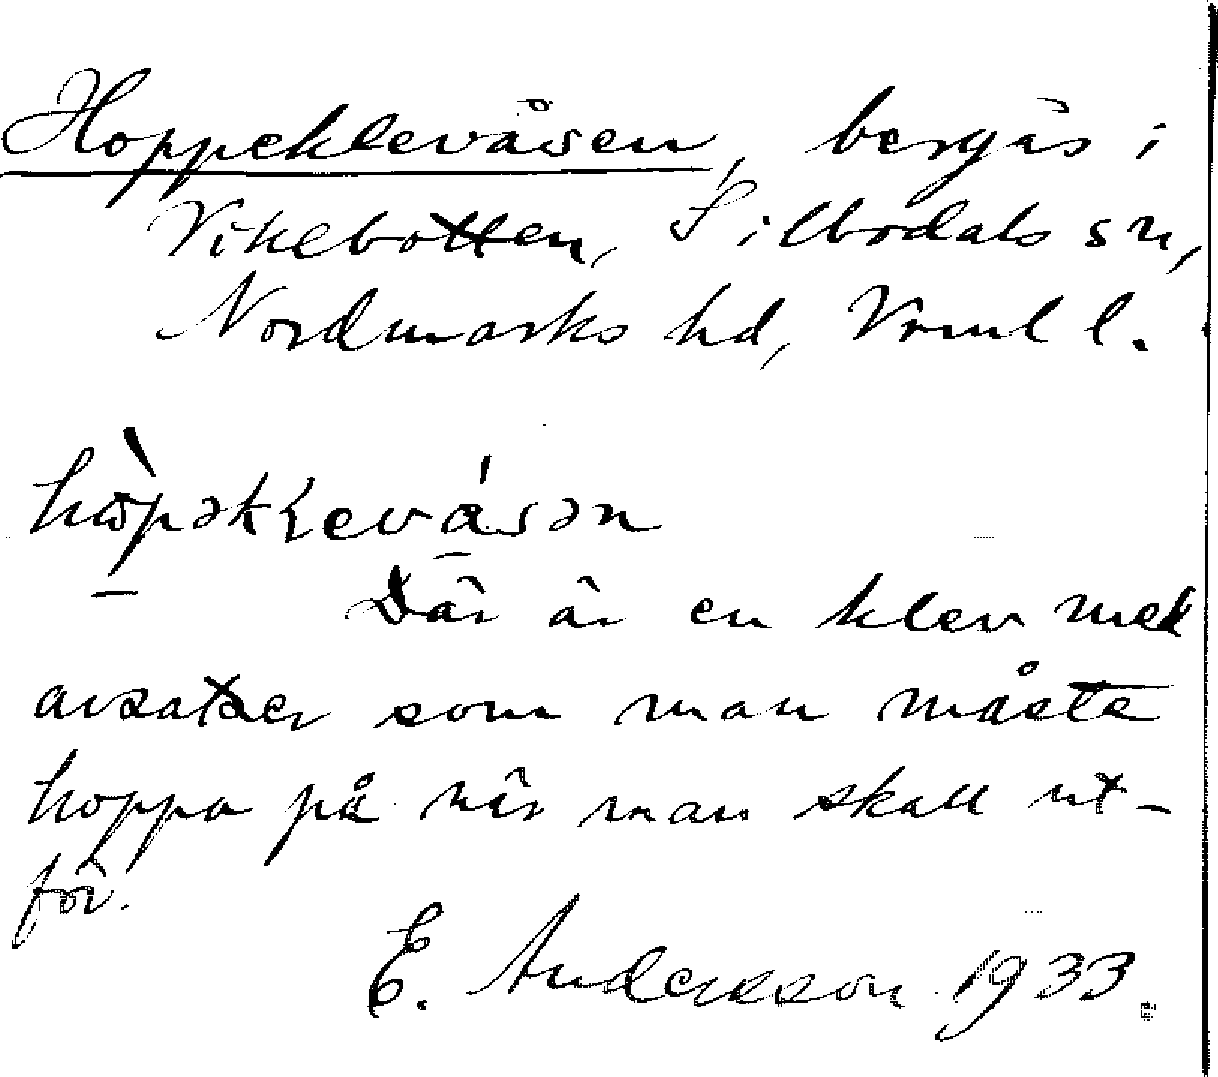 Hoppeklevåsen, bergås i
Viklebotten, Sillbodals sn,
Nordmarks hd, Vrml l.
Där är en klev med
avsatser som man måste
hoppa på när man skall ut-
för.
E. Andersson 1933.